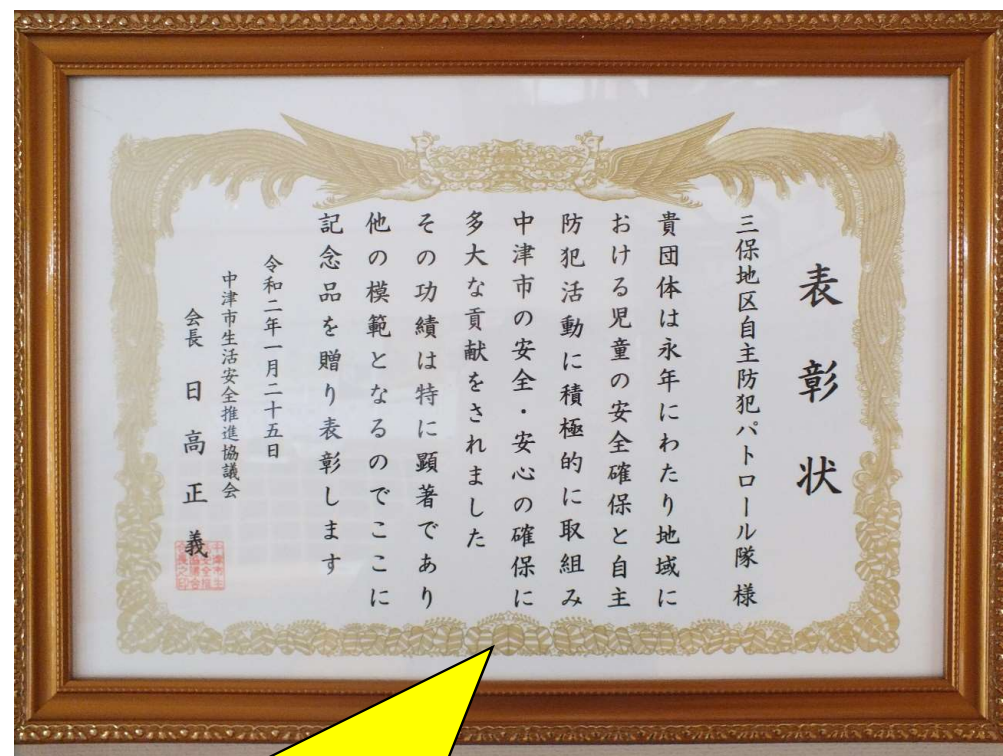 表彰状
三保地区自主防犯パトロール隊 様
貴団体は永年にわたり地域に
おける児童の安全確保と自主
防犯活動に積極的に取組み
中津市の安全・安心の確保に
多大な貢献をされました
その功績は特に顕著であり
他の模範となるのでここに
記念品を贈り表彰します
令和二年一月二十五日
中津市生活安全推進協議会
会長 日高正義